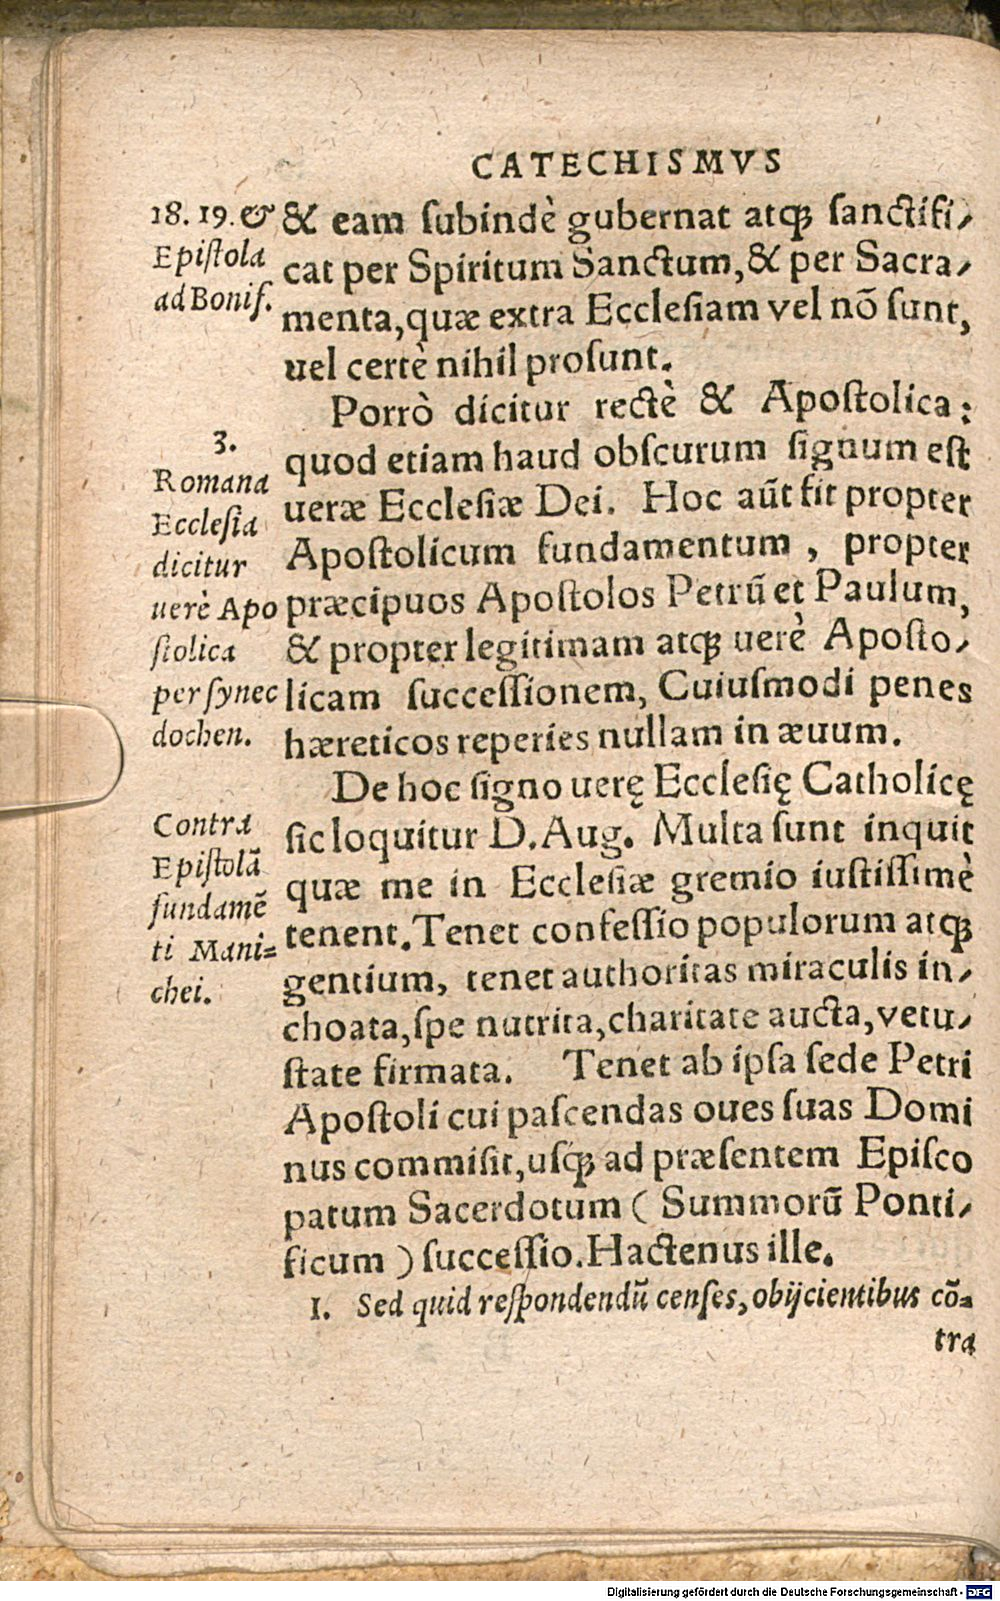 CATECHISMVS
18. 19. &
Epiſtola
ad Bonif.
& eam ſubindè gubernat atqꝫ ſanctifi-
cat per Spiritum Sanctum, & per Sacra-
menta, quæ extra Eccleſiam vel nõ ſunt,
uel certè nihil proſunt.
Porrò dicitur rectè & Apoſtolica:
quod etiam haud obſcurum ſignum eſt
ueræ Eccleſiæ Dei. Hoc aũt fit propter
Apoſtolicum fundamentum, propter
præcipuos Apoſtolos Petrũ et Paulum,
& propter legitimam atqꝫ uerè Apoſto-
licam ſucceſſionem, Cuiuſmodi penes
hæreticos reperies nullam in æuum.
3.
Romana
Eccleſia
dicitur
uerè Apo
ſtolica
per ſynec
dochen.
De hoc ſigno uerę Eccleſię Catholicę
ſic loquitur D. Aug. Multa ſunt inquit
quæ me in Eccleſiæ gremio iuſtiſſimè
tenent. Tenet confeſſio populorum atqꝫ
gentium, tenet authoritas miraculis in-
choata, ſpe nutrita, charitate aucta, vetu-
ſtate firmata. Tenet ab ipſa ſede Petri
Apoſtoli cui paſcendas oues ſuas Domi
nus commiſit, uſqꝫ ad præſentem Epiſco
patum Sacerdotum ( Summorũ Ponti-
ficum ) ſucceſſio. Hactenus ille.
Contra
Epiſtolã
fundamẽ
ti Mani=
chei.
1. Sed quid reſpondendũ cenſes, obijcientibus cõ=
tra
Digitalisierung gefördert durch die Deutsche Forschungsgemeinschaft - DFG